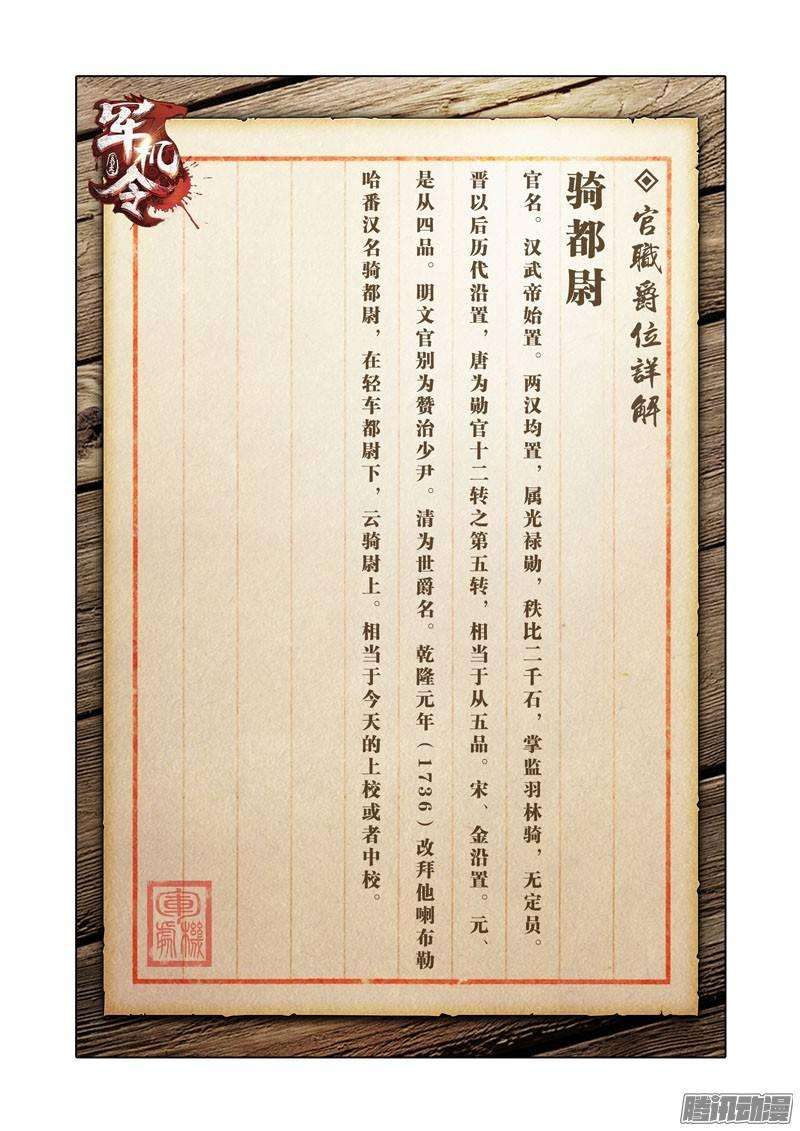 官職爵位詳解
骑都尉
官名。汉武帝始置。两汉均置，属光禄勋，秩比二千石，掌监羽林骑，无定员。
晋以后历代沿置，唐为勋官十二转之第五转，相当于从五品。宋、金沿置。元、
是从四品。明文官别为赞治少尹。清为世爵名。乾隆元年(1736)改拜他喇布勒
哈番汉名骑都尉，在轻车都尉下，云骑尉上。相当于今天的上校或者中校。
军机令
軍機處
腾讯动漫